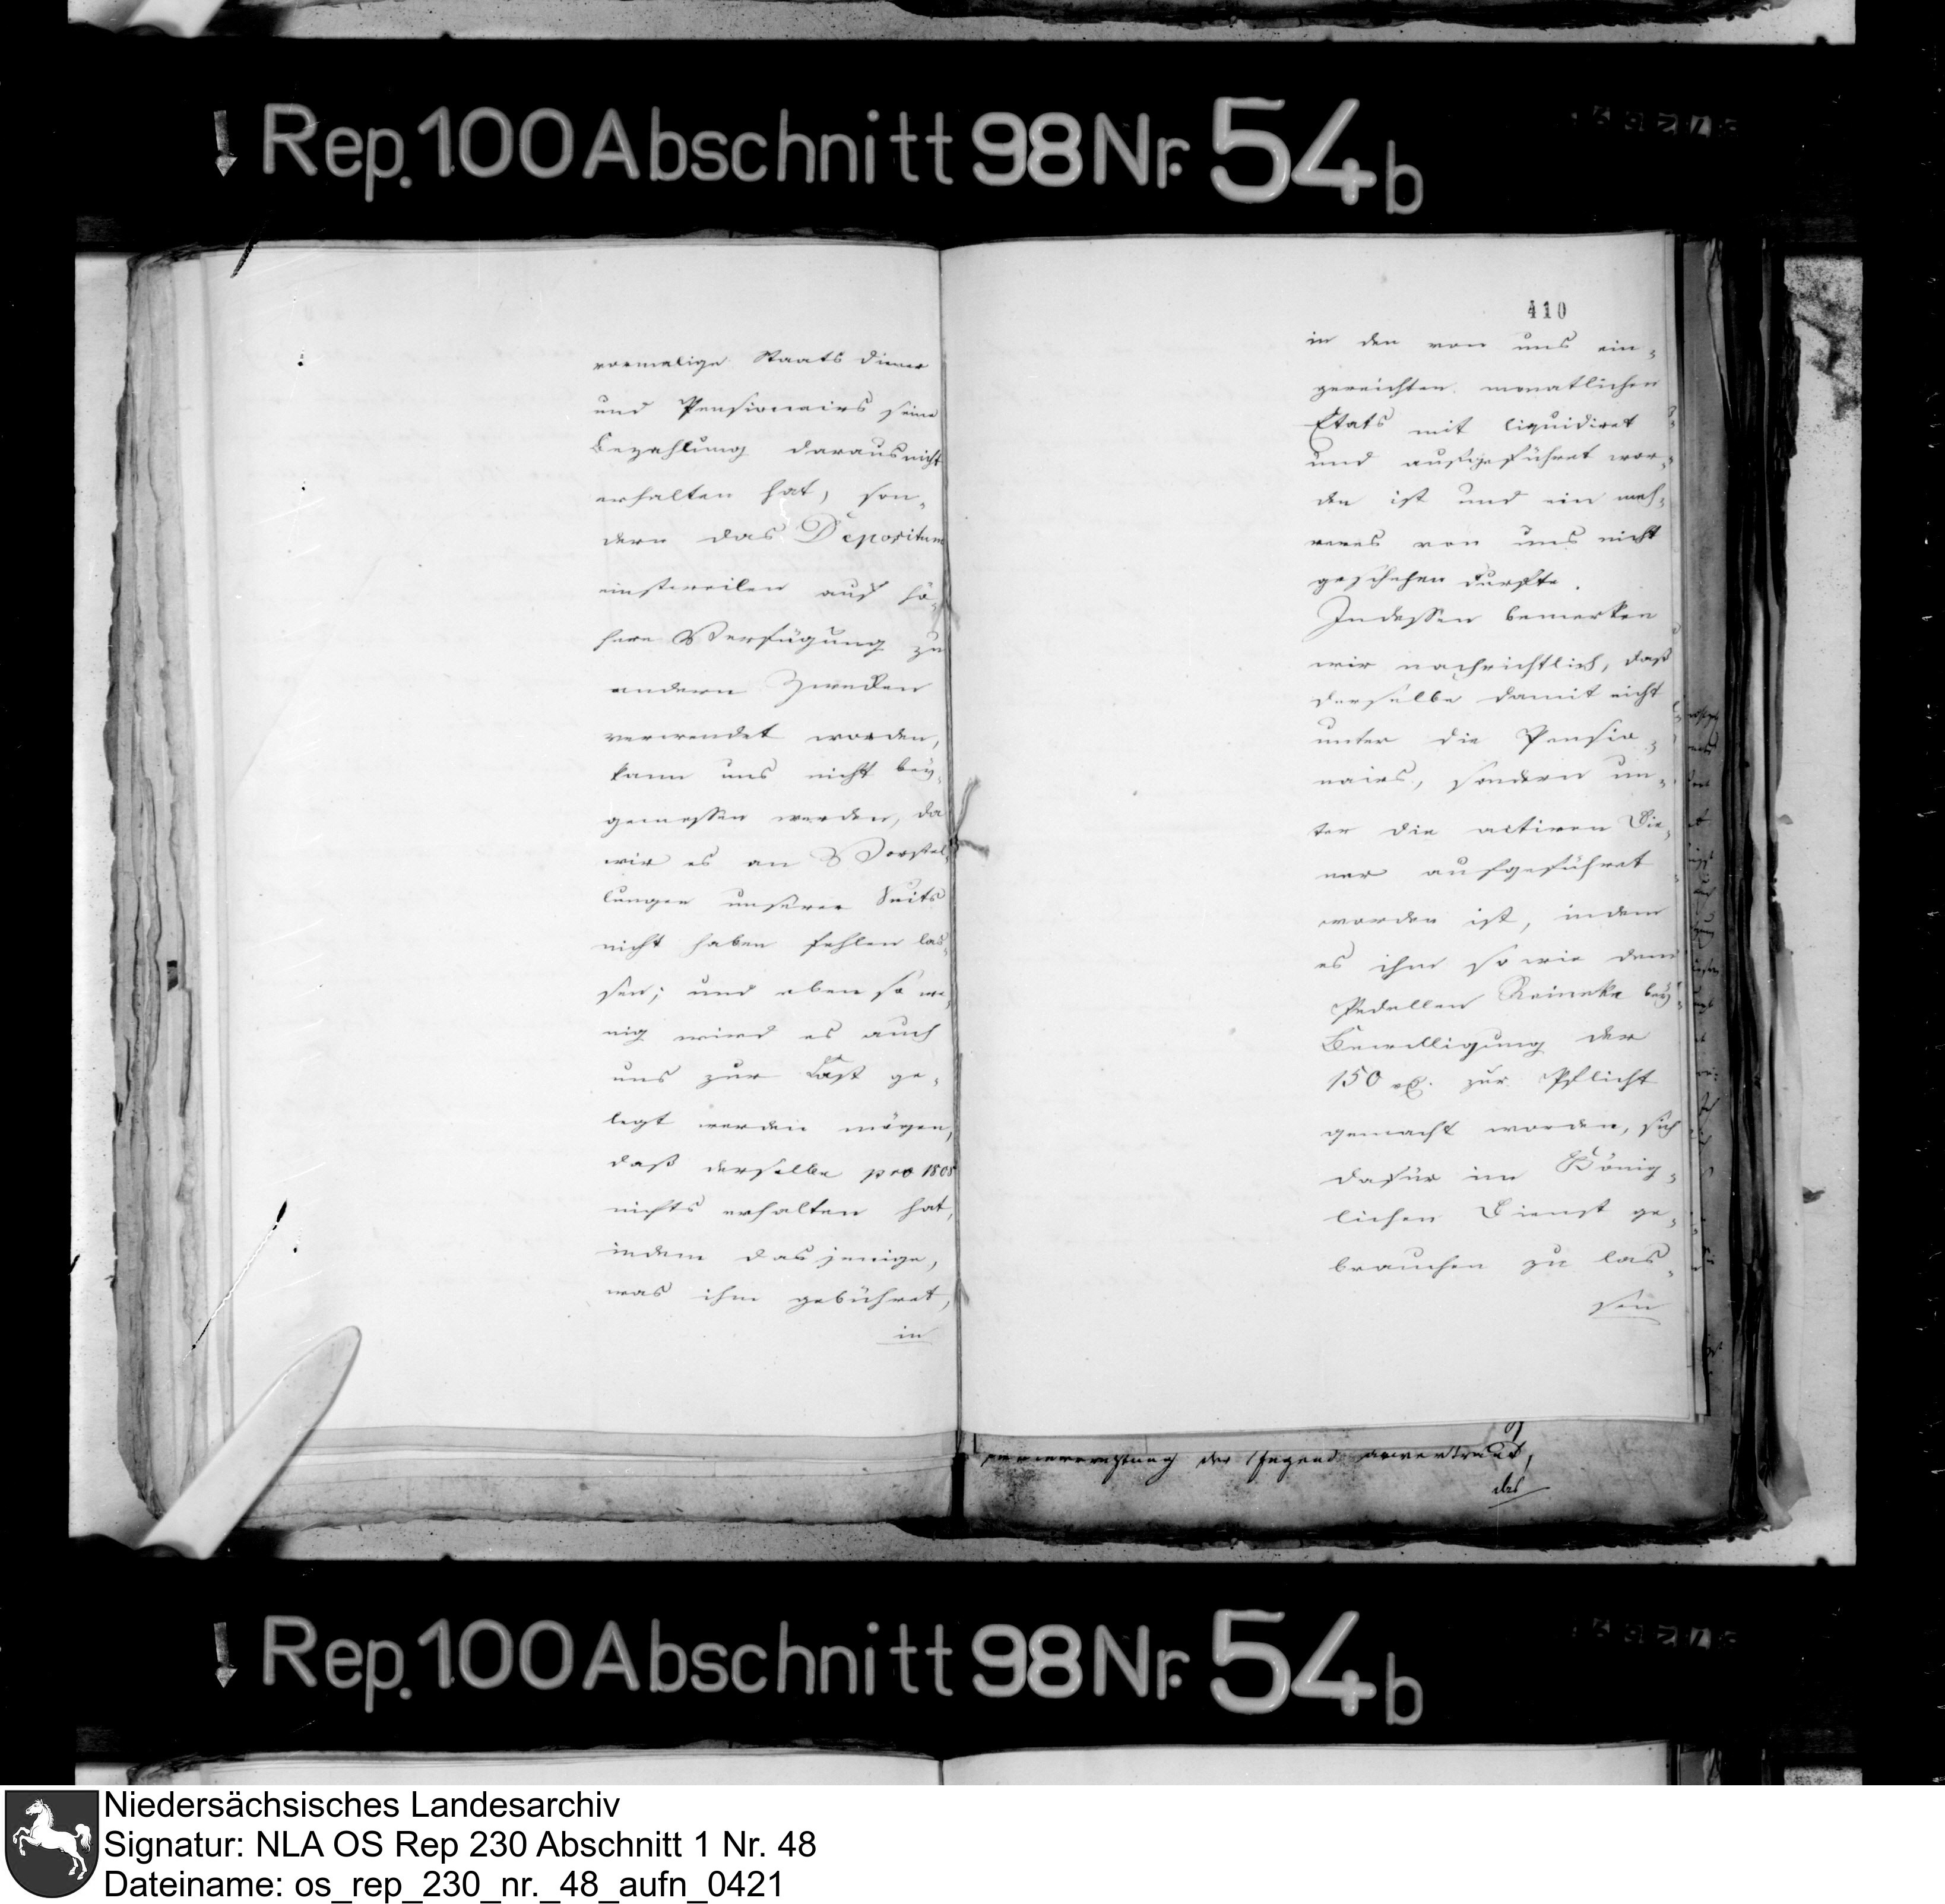 Rep. 100 Abschnitt 98 Nr. 54b
vormalige Staats diener
und Pensionairs seine
Bezahlung daraus nicht
erhalten hat, son-
dern das Depositum
einstweilen auf hö-
here Verfügung zu
andern Zwecken
verwendet worden,
kann uns nicht bey-
gemessen werden, da
wir es an Vorstel-
lungen unserer Seits
nicht haben fehlen las-
sen; und eben so we-
nig wird es auch
uns zur Last ge-
legt werden mögen,
daß derselbe pro 1808
nichts erhalten hat,
indem dasjenige,
was ihm gebühret,
in
410
in den von uns ein-
gereichten monatlichen
Etats mit liquidiret
und aufgeführet wor-
den ist und ein meh-
reres von uns nicht
geschehen durfte.
Indessen bemerken
wir nachrichtlich, daß
derselbe damit nicht
unter die Pensio-
nairs, sondern un-
ter die activen Die-
ner aufgeführet
worden ist, indem
es ihm so wie dem
Pedellen Reineke bey
Bewilligung der
150 rth. zur Pflicht
gemacht worden, sich
dafür im König-
lichen Dienst ge-
brauchen zu las-
sen
der Jugend anvertraut,
das
Rep. 100 Abschnitt 98 Nr. 54b
Niedersächsisches Landesarchiv
Signatur: NLA OS Rep 230 Abschnitt 1 Nr. 48
Dateiname: os_rep_230_nr._48_aufn_0421